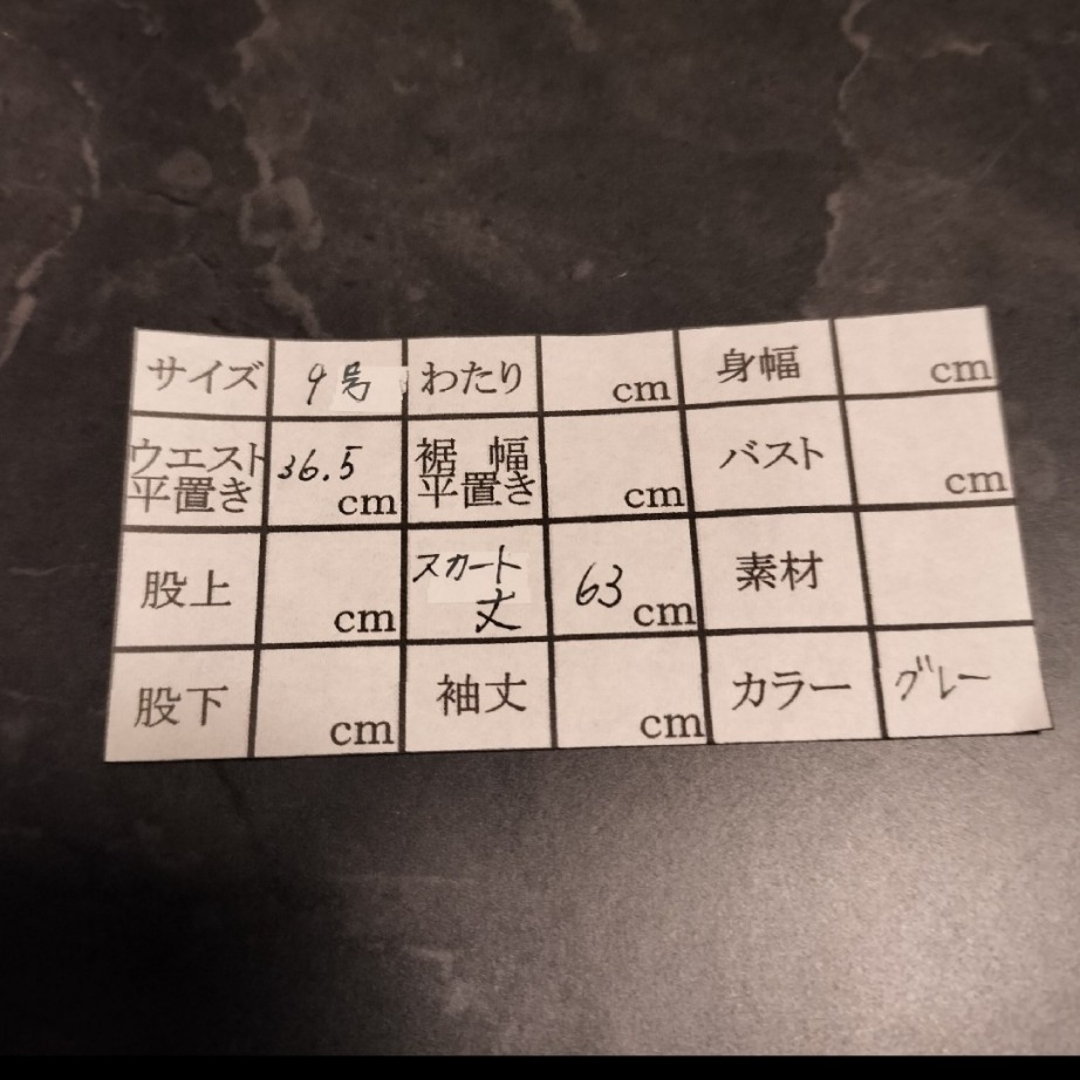 サイズ 9号 わたり cm 身幅 cm
ウエスト平置き 36.5cm 裾幅平置き cm バスト cm
股上 cm スカート丈 63cm 素材
股下 cm 袖丈 cm カラー グレー